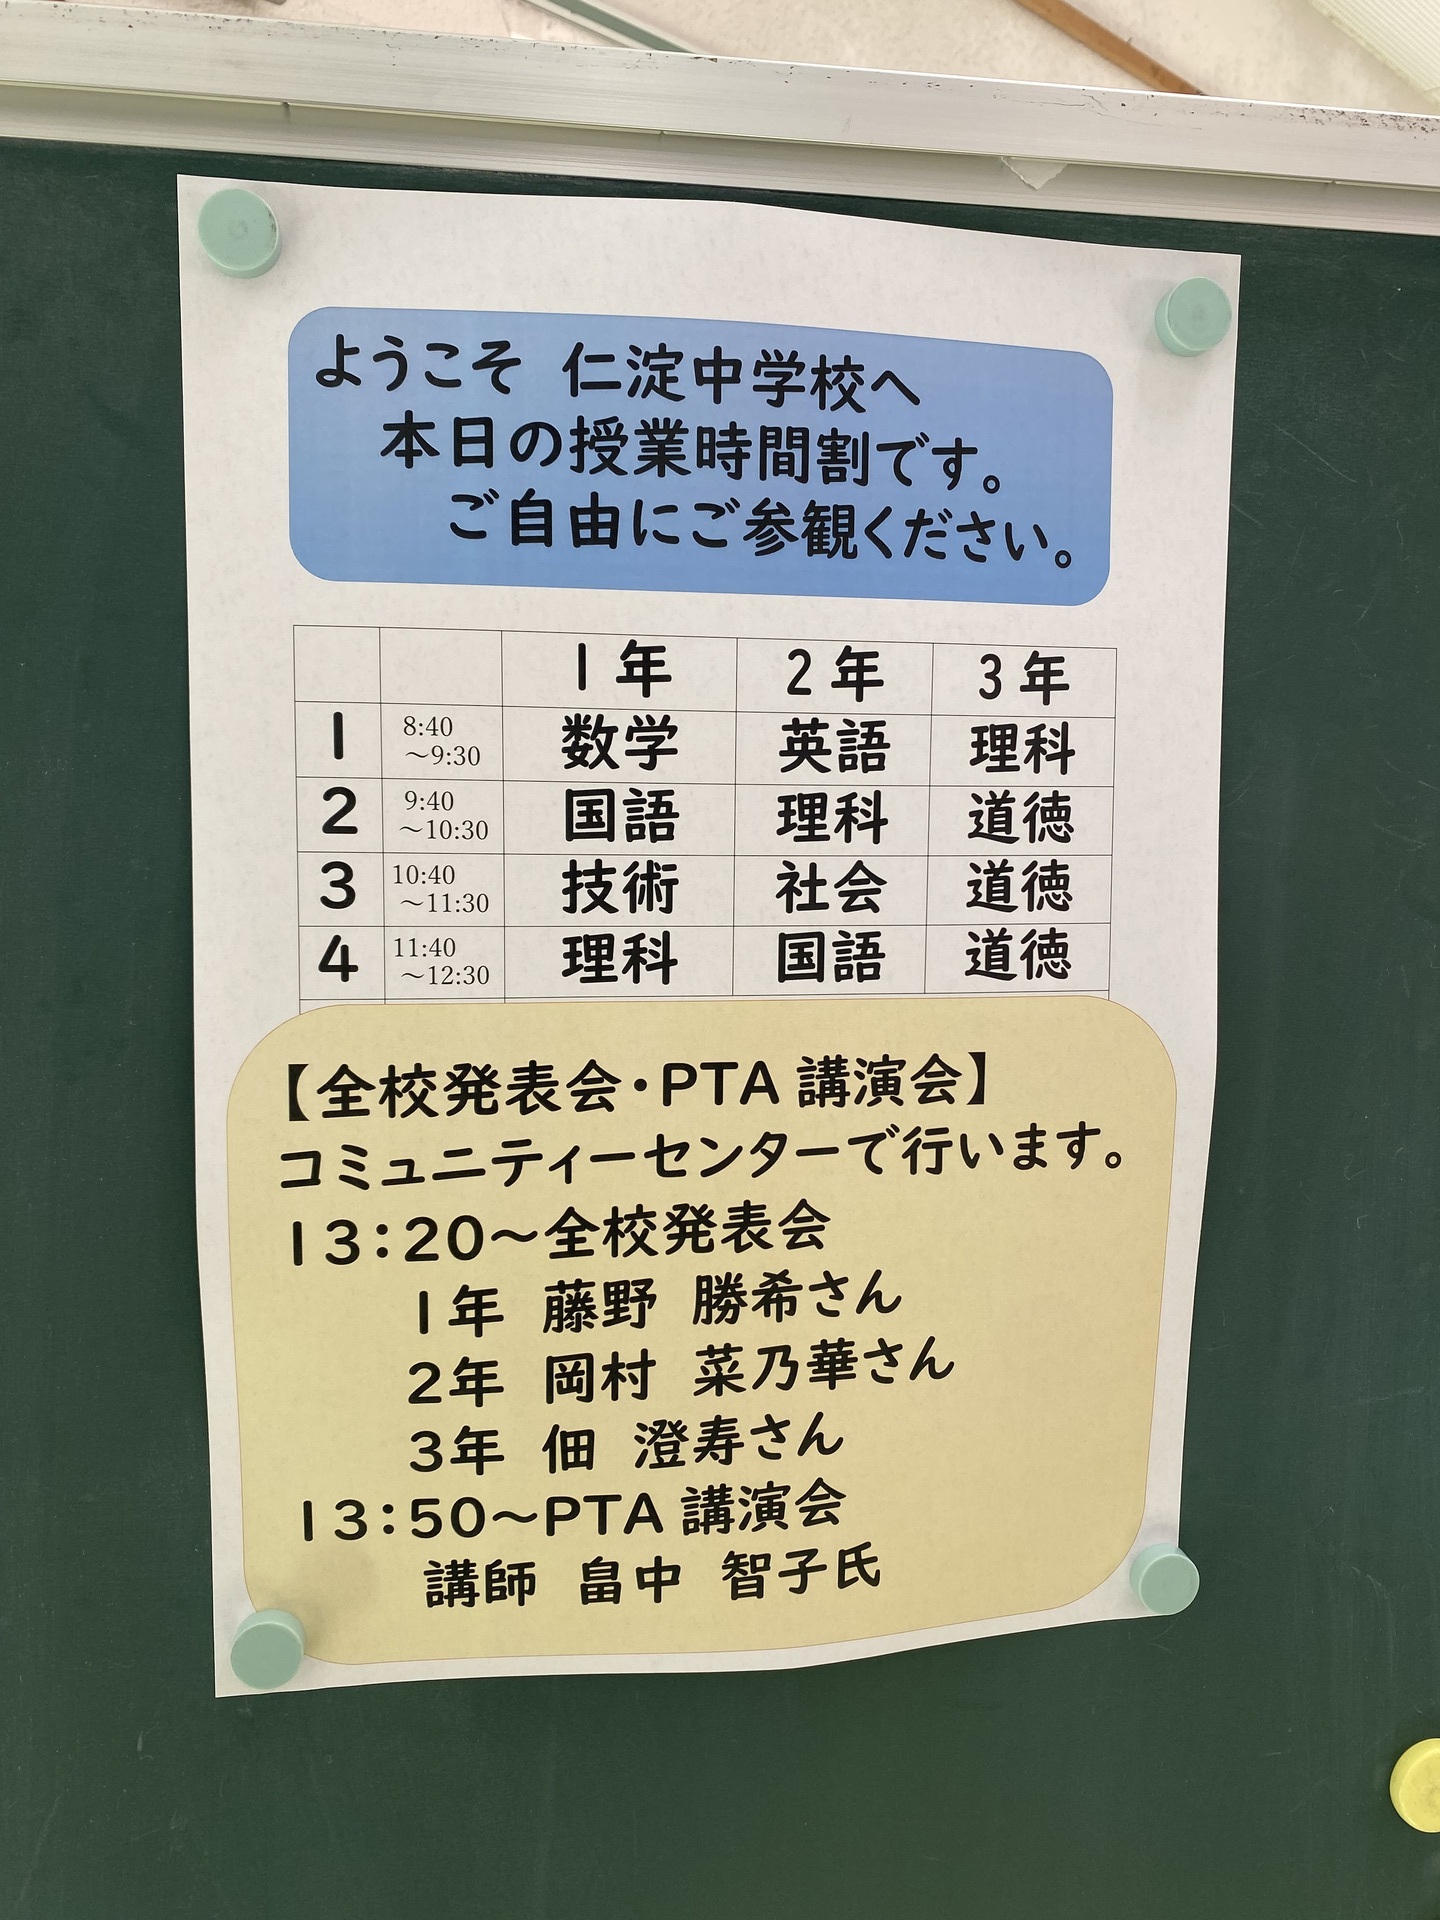 ようこそ 仁淀中学校へ
本日の授業時間割です。
ご自由にご参観ください。
1年 2年 3年
1 8:40～9:30 数学 英語 理科
2 9:40～10:30 国語 理科 道徳
3 10:40～11:30 技術 社会 道徳
4 11:40～12:30 理科 国語 道徳
【全校発表会・PTA 講演会】
コミュニティーセンターで行います。
13:20～全校発表会
1年 藤野 勝希さん
2年 岡村 菜乃華さん
3年 佃 澄寿さん
13:50～PTA 講演会
講師 畠中 智子氏